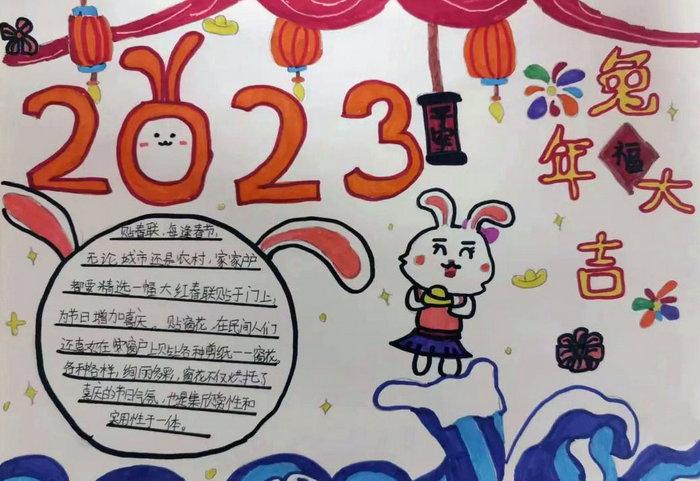 2023
兔
年
福
大
吉
平安
贴春联,每逢春节,
无论城市还是农村,家家户户
都要精选一幅大红春联贴于门上,
为节日增加喜庆。贴窗花,在民间人们
还喜欢在窗户上贴上各种剪纸——窗花,
各种各样,绚丽多彩,窗花不仅烘托了
喜庆的节日气氛,也是集欣赏性和
实用性于一体。